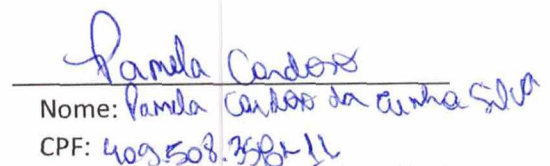 Pamela Cardoso
Nome: Pamela Cardoso da Cunha Silva
CPF: 409.508.358-11